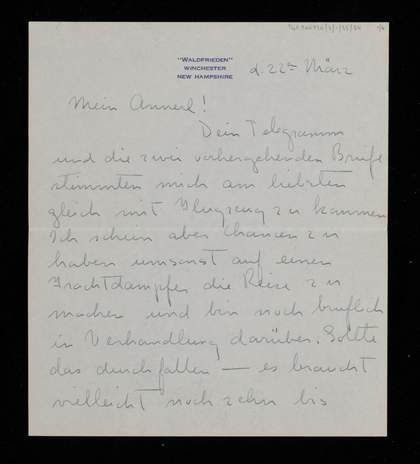 "WALDFRIEDEN"
WINCHESTER
NEW HAMPSHIRE
d. 22ten März
Mein Annerl!
Dein Telegramm
und die zwei vorhergehenden Briefe
stimmten mich am liebsten
gleich mit Flugzeug zu kommen
Ich schein aber Chancen zu
haben umsonst auf einen
Frachtdampfer die Reise zu
machen und bin noch brieflich
in Verhandlung darüber. Sollte
das durchfallen — es braucht
vielleicht noch zehn bis